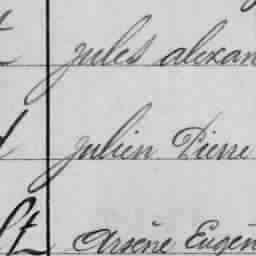 Jules alexan
Julien Pierre
Arsène Eugèn